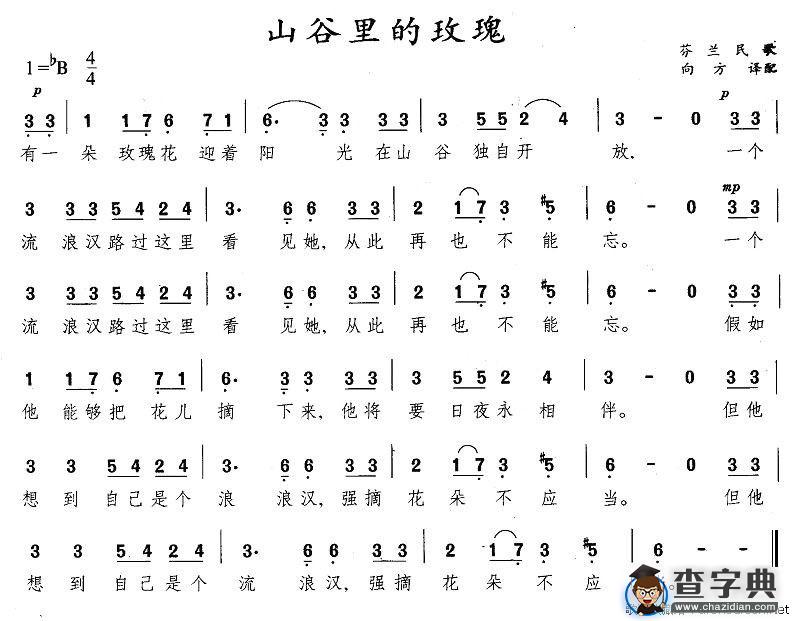 山谷里的玫瑰
芬兰民歌
1=♭B 4/4
向方 译配
p
p
3 3 | 1 1 1 7 6 7 1 | 6· 3 3 3 3 | 3 5 5 2 4 | 3 - 0 3 3 |
有一 朵 玫瑰花 迎着 阳 光 在山 谷 独自开 放, 一个
mp
3 3 3 5 4 2 4 | 3· 6 6 3 3 | 2 1 7 3 #5 | 6 - 0 3 3 |
流 浪汉路过这里 看 见她, 从此 再 也 不 能 忘。 一个
3 3 3 5 4 2 4 | 3· 6 6 3 3 | 2 1 7 3 #5 | 6 - 0 3 3 |
流 浪汉路过这里 看 见她, 从此 再 也 不 能 忘。 假如
1 1 7 6 7 1 | 6· 3 3 3 3 | 3 5 5 2 4 | 3 - 0 3 3 |
他 能够把 花儿 摘 下来, 他将 要 日夜永 相 伴。 但他
3 3 5 4 2 4 | 3· 6 6 3 3 | 2 1 7 3 #5 | 6 - 0 3 3 |
想 到 自己是个 浪 浪汉, 强摘 花 朵 不 应 当。 但他
3 3 5 4 2 4 | 3· 6 6 3 3 | 2 1 7 3 #5 | 6 - - ‖
想 到 自己是个 流 浪汉, 强摘 花 朵 不 应
查字典
www.chazidian.com